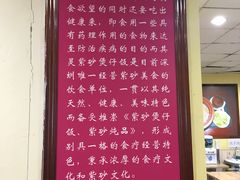 食欲望的同时还要吃出
健康来，即食用一些具
有药理作用的食物来达
至防治疾病的目的而其
灵紫砂煲仔饭是目前深
圳唯一经营紫砂美食的
饮食单位，一贯以其纯
天然、健康、美味特色
而备受推崇《紫砂煲仔
饭、紫砂炖品》，形成
别具一格的食疗经营特
色，秉承浓厚的食疗文
化和紫砂文化。